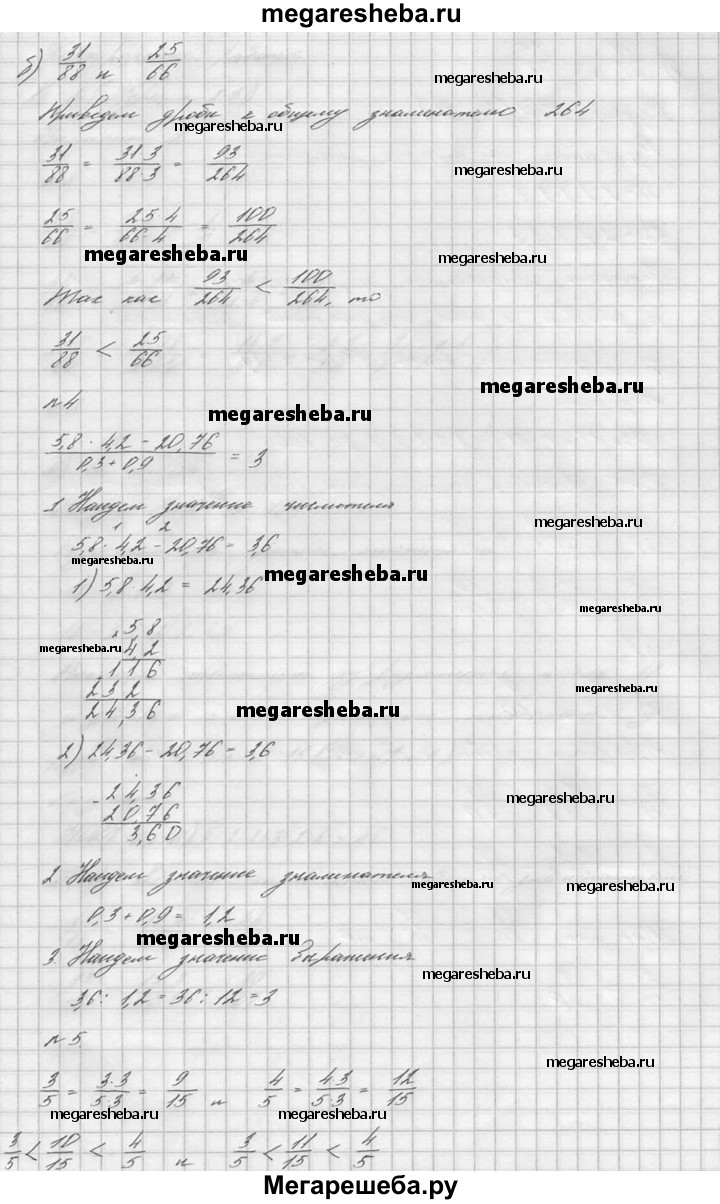 megaresheba.ru
б) 31/88 и 25/66
megaresheba.ru
Приведем дроби к общему знаменателю 264
megaresheba.ru
31/88 = 31·3/88·3 = 93/264
megaresheba.ru
25/66 = 25·4/66·4 = 100/264
megaresheba.ru
megaresheba.ru
Так как 93/264 < 100/264, то
31/88 < 25/66
megaresheba.ru
№4
megaresheba.ru
5,8·4,2-20,76/0,3+0,9 = 3
1 Найдем значение числителя
megaresheba.ru
1 2
5,8·4,2-20,76=3,6
megaresheba.ru
megaresheba.ru
1) 5,8·4,2 = 24,36
megaresheba.ru
×5,8
4,2
megaresheba.ru
116
232
megaresheba.ru
24,36
megaresheba.ru
2) 24,36-20,76=3,6
-24,36
megaresheba.ru
20,76
3,60
2 Найдем значение знаменателя
megaresheba.ru
megaresheba.ru
0,3+0,9=1,2
megaresheba.ru
3. Найдем значение выражения
megaresheba.ru
3,6:1,2=36:12=3
№5.
megaresheba.ru
3/5 = 3·3/5·3 = 9/15 и 4/5 = 4·3/5·3 = 12/15
megaresheba.ru
megaresheba.ru
3/5 < 10/15 < 4/5 и 3/5 < 11/15 < 4/5
Мегарешеба.ру